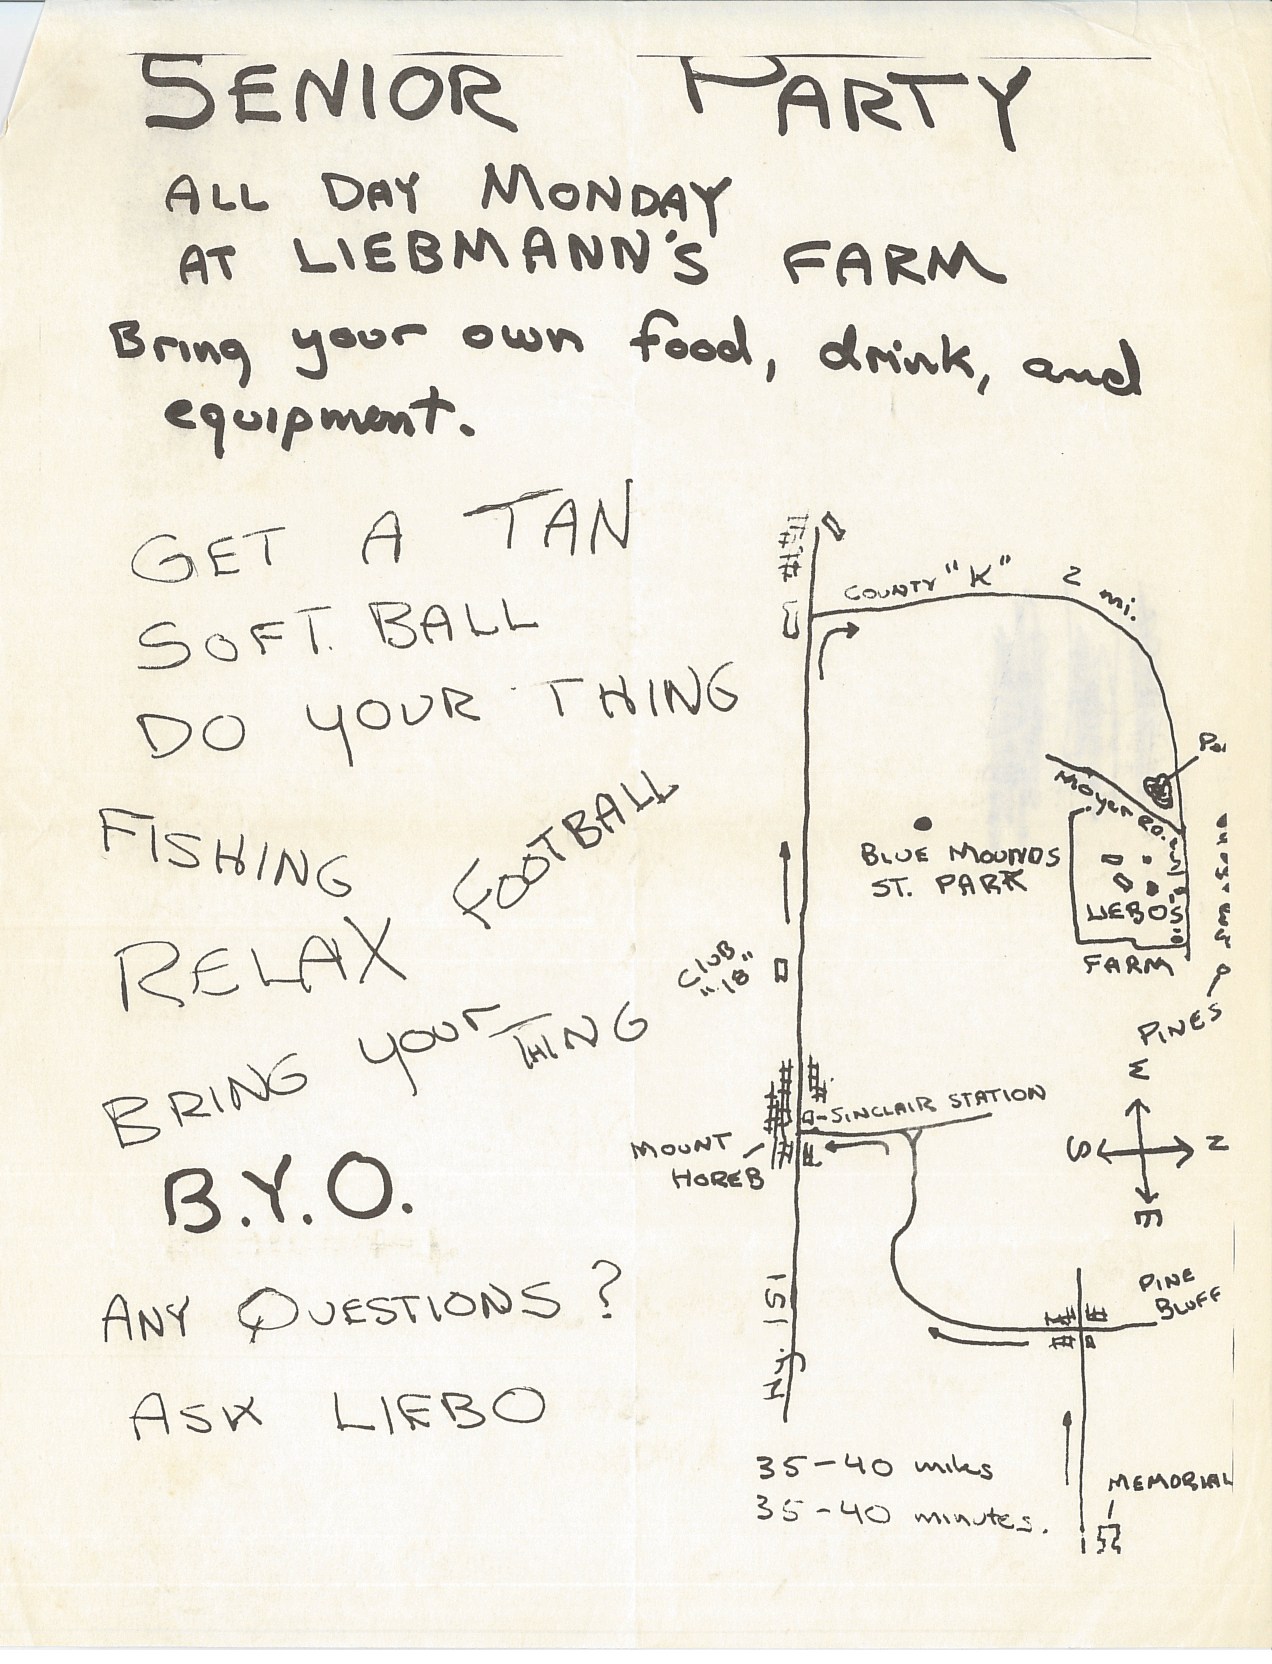 SENIOR PARTY
ALL DAY MONDAY
AT LIEBMANN'S FARM
Bring your own food, drink, and
equipment.
GET A TAN
SOFT. BALL
DO YOUR THING
FISHING
FOOTBALL
RELAX
BRING YOUR THING
B.Y.O.
ANY QUESTIONS?
ASK LIEBO
COUNTY "K"
2 mi.
Moyer RD.
BLUE MOUNDS
ST. PARK
LIEBO'S
FARM
PINES
CLUB
"18"
SINCLAIR STATION
MOUNT
HOREB
W
S
N
E
PINE
BLUFF
HY. 151
MEMORIAL
35-40 miles
35-40 minutes.